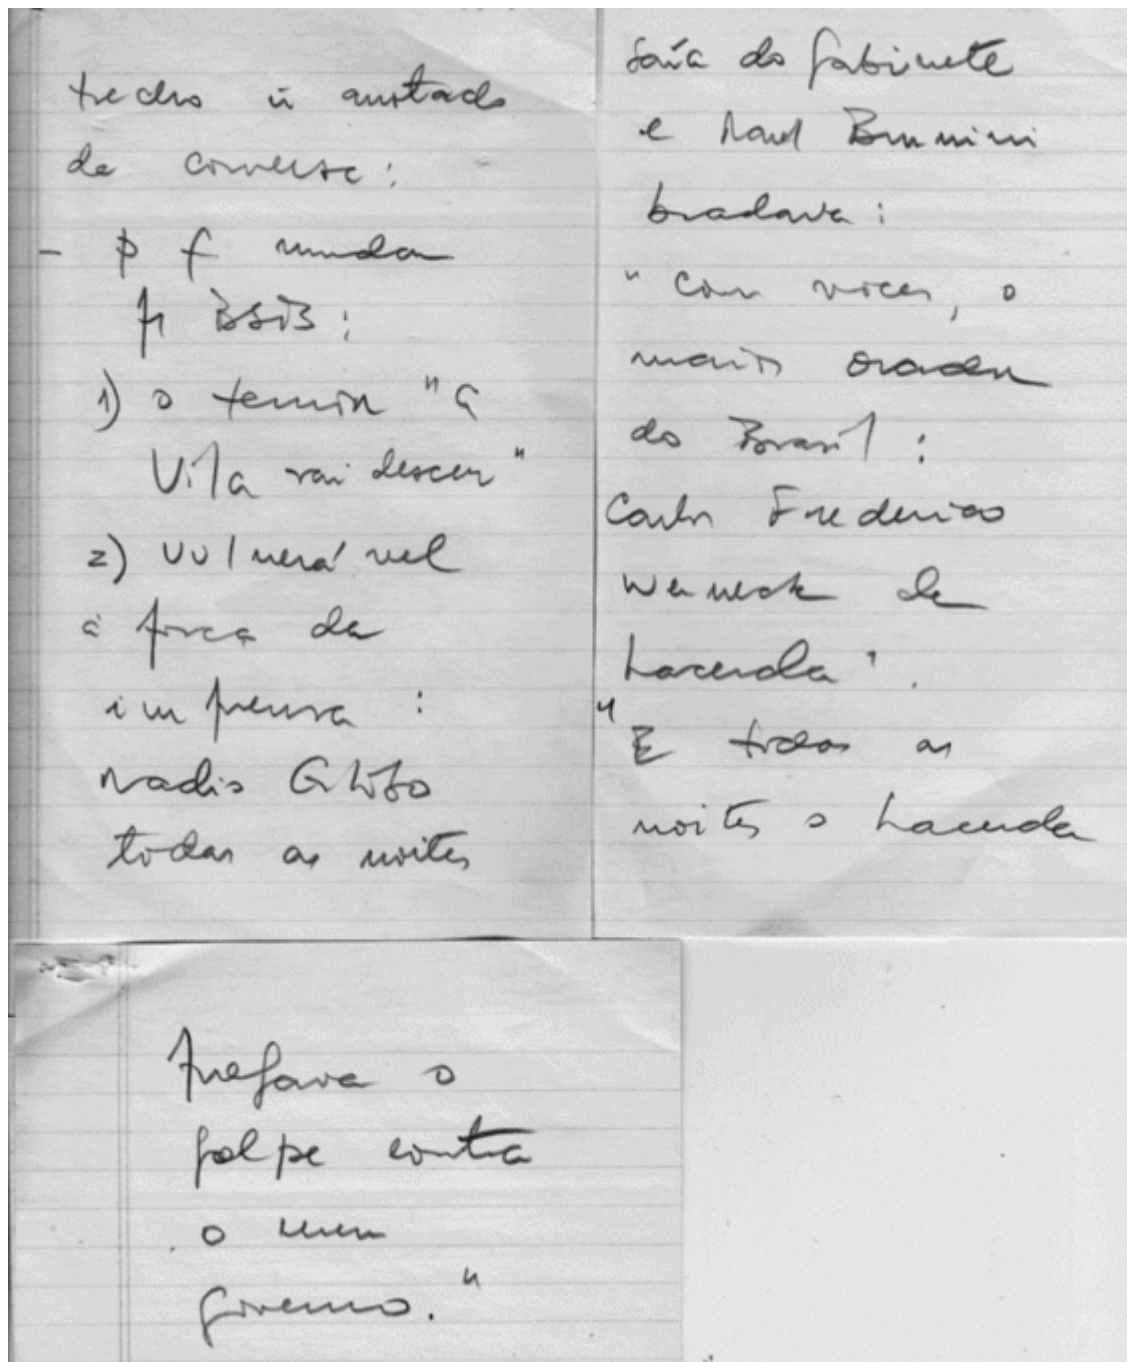 trecho ñ anotado
da conversa:
- p q mudar
p/ BSB:
1) o temor "a
Vila vai descer"
2) vulnerável
à força da
imprensa:
Radio Globo
todas as noites
saía do gabinete
e Raul Brunini
bradava:
"Com voces, o
maior orador
do Brasil:
Carlos Frederico
Werneck de
Lacerda".
"E todas as
noites o Lacerda
pregava o
golpe contra
o meu
governo."